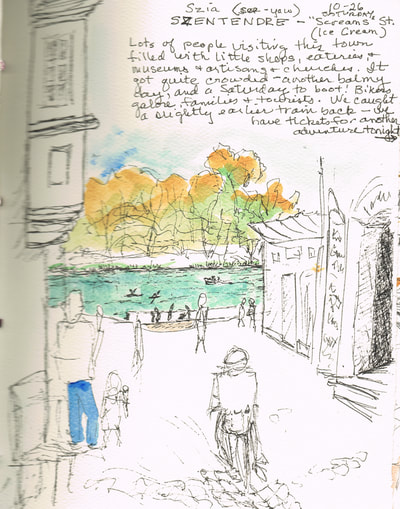 Szia (see-yow) 10-26
SATURDAY
SZENTENDRE - "Screams" St.
(Ice Cream)
Lots of people visiting this town
filled with little shops, eateries,
museums + artisans + churches. It
got quite crowded - another balmy
day, and a Saturday to boot! Bikers
galore, families + tourists. We caught
a slightly earlier train back - we
have tickets for another
adventure tonight